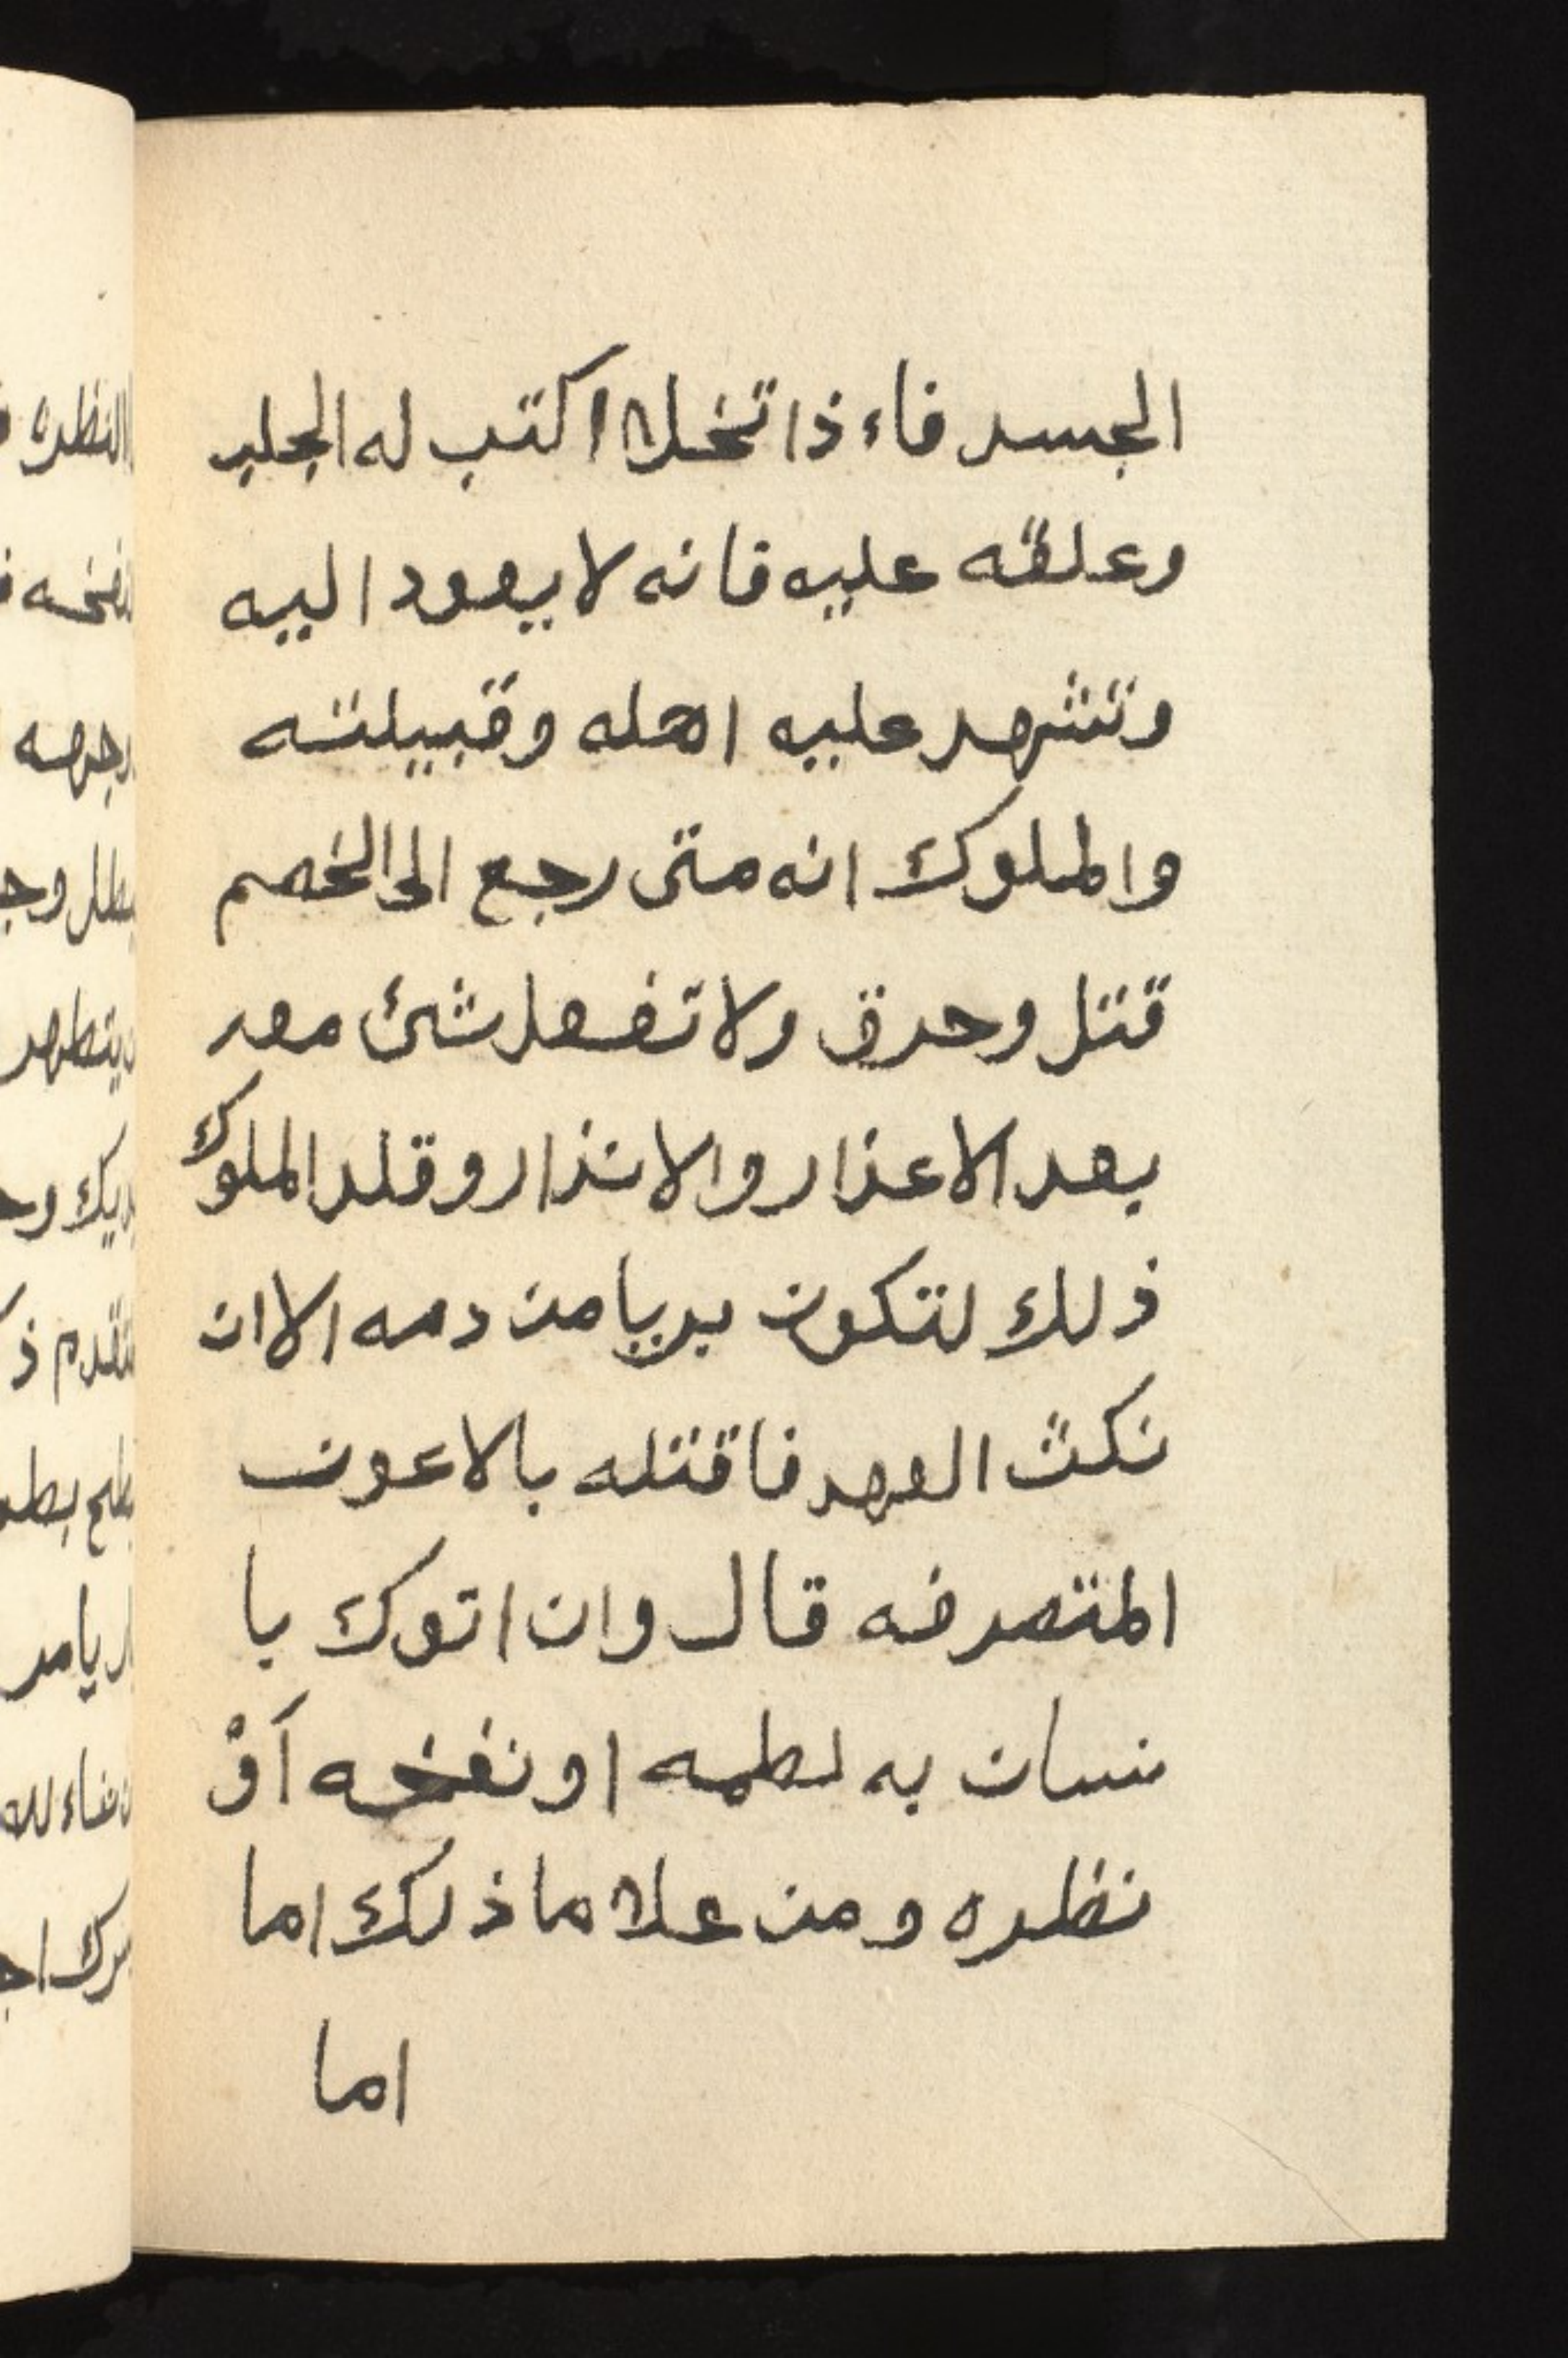 الجسد فاءذا تخلا اكتب له الجلب
وعلقه عليه فانه لا يعود اليه
وتشهد عليه اهله وقبيلته
والملوك انه متى رجع الى الخصم
قتل وحرق ولا تفعل شئ معه
بعد الاعذار والانذار وقلد الملوك
ذلك لتكون بريا من دمه الا ان
نكث العهد فاقتله بالاعون
المتصرفه قال وان اتوك با
نسان به لطمه او نفخه آوْ
نظره ومن علاما ذلك اما
اما